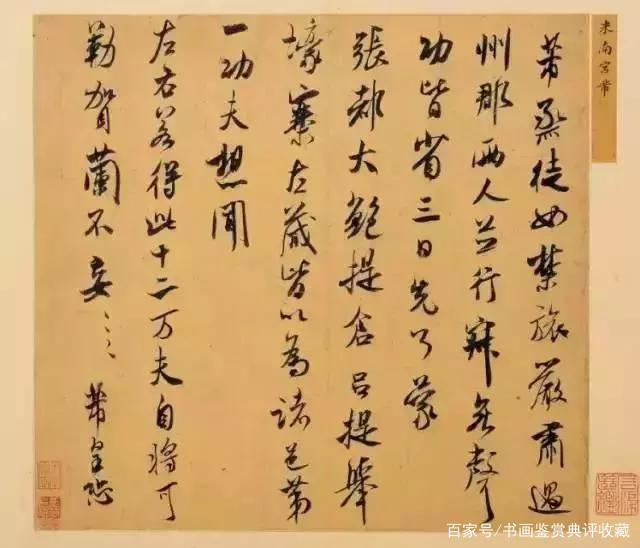 米南宮芾
芾烝徒如禁旅嚴肅過
州郡兩人並行寂無聲
功皆省三日先了蒙
張都大鮑提倉呂提舉
壕寨左藏皆以為諸邑第
一功夫想聞
左右若得此十二万夫自將可
勒賀蘭不妄〻〻 芾皇恐
百家号/书画鉴赏典评收藏